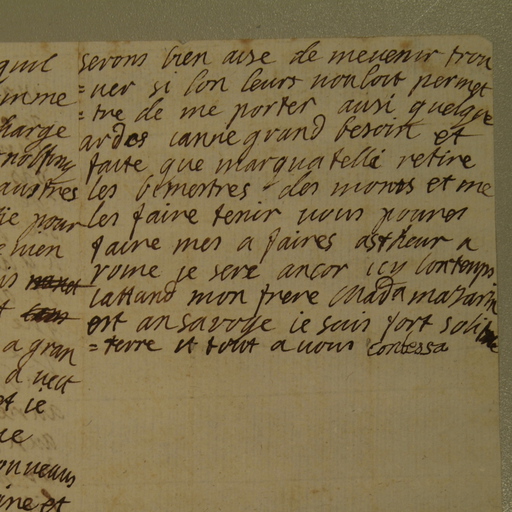 quil
amme
harge
austres
ie pour
e men
is
t
a gran
a vect
et ie
ue
onveaus
ine et
serons bien aise de mevenir trou
=ver si lon leurs vouloit permet
=tre de me porter ausi quelque
ardes ianne grand besoin et
faite que marquatelli retire
les bimestres des monts et me
les faire tenir vous pouves
faire mes a faires astheur a
rome je sere ancor icy lontemps
iattand mon frere Mada mazarin
est an savoye ie suis fort soli
=terre et tout a vous contessa